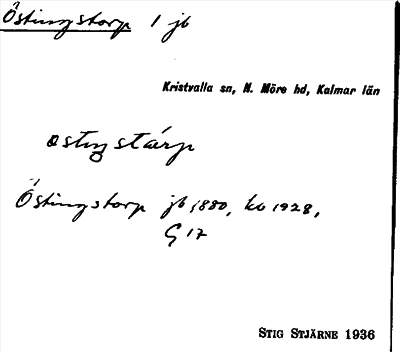 Östingstorp 1 jb
Kristvalla sn, N. Möre hd, Kalmar län
ostingstärp
Östingstorp jb 1880, kv 1928,
G 17
STIG STJÄRNE 1936